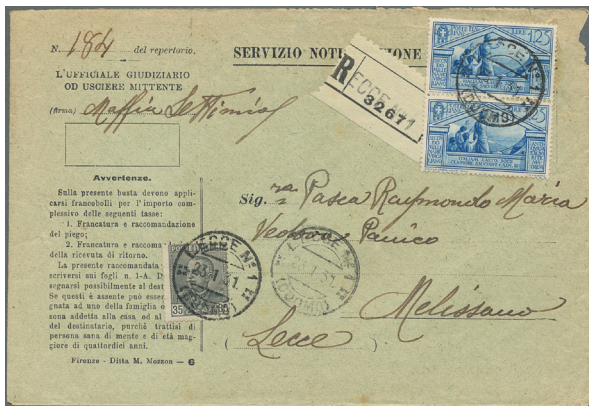 N. 184 del repertorio.
L'UFFICIALE GIUDIZIARIO
OD USCIERE MITTENTE
(firma) Maffia Settimio
Avvertenze.
Sulla presente busta devono appli-
carsi francobolli per l'importo com-
plessivo delle seguenti tasse:
1. Francatura e raccomandazione
del piego;
2. Francatura e raccoma
della ricevuta di ritorno.
La presente raccomandata
scriversi sui fogli n. 1-A. D
segnarsi possibilmente al dest
Se questi è assente può esser
gnata ad uno della famiglia o
sona addetta alla casa od al
del destinatario, purchè trattisi di
persona sana di mente e di età mag-
giore di quattordici anni.
Firenze - Ditta M. Mozzon — 6
SERVIZIO NOTI IONE
R
ECCE N° 1
32671
LIRE 1,25
LECCE N° 1
(DUOMO)
Sig.ra Pasca Raymondo Maria
Vedova Panico
Melissano
(Lecce)
35
LECCE N° 1
23.1.31
(DUOMO)
LECCE N° 1
23.1.31
(DUOMO)